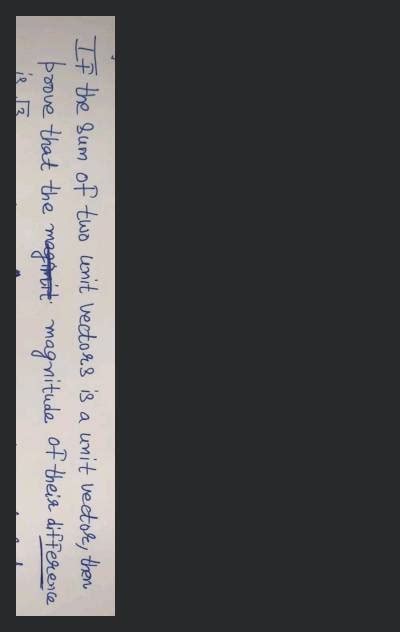 If the sum of two unit vectors is a unit vector, then
prove that the magnitude of their difference
is √3